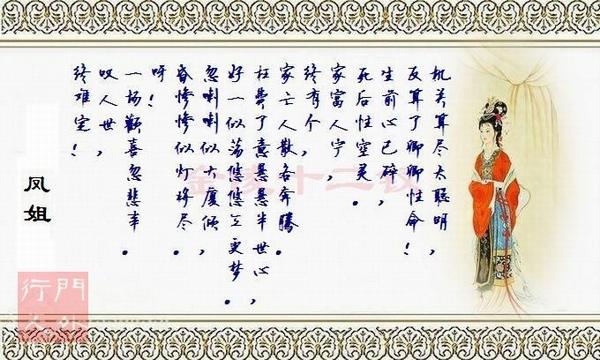 机关算尽太聪明,
反算了卿卿性命!
生前心已碎,
死后性空灵。
家富人宁,
终有个,
家亡人散各奔腾。
枉费了意悬悬半世心,
好一似荡悠悠三更梦。
忽喇喇似大厦倾,
昏惨惨似灯将尽。
呀!
一场歡喜忽悲辛。
叹人世,
终难定!
凤姐
金陵十二钗
門外行人